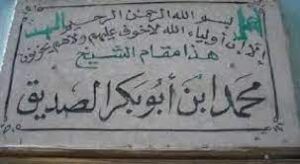 بسم الله الرحمن الرحيم
إلا إن أولياء الله لا خوف عليهم ولا هم يحزنون
هذا مقام الشيخ
محمد ابن أبو بكر الصديق